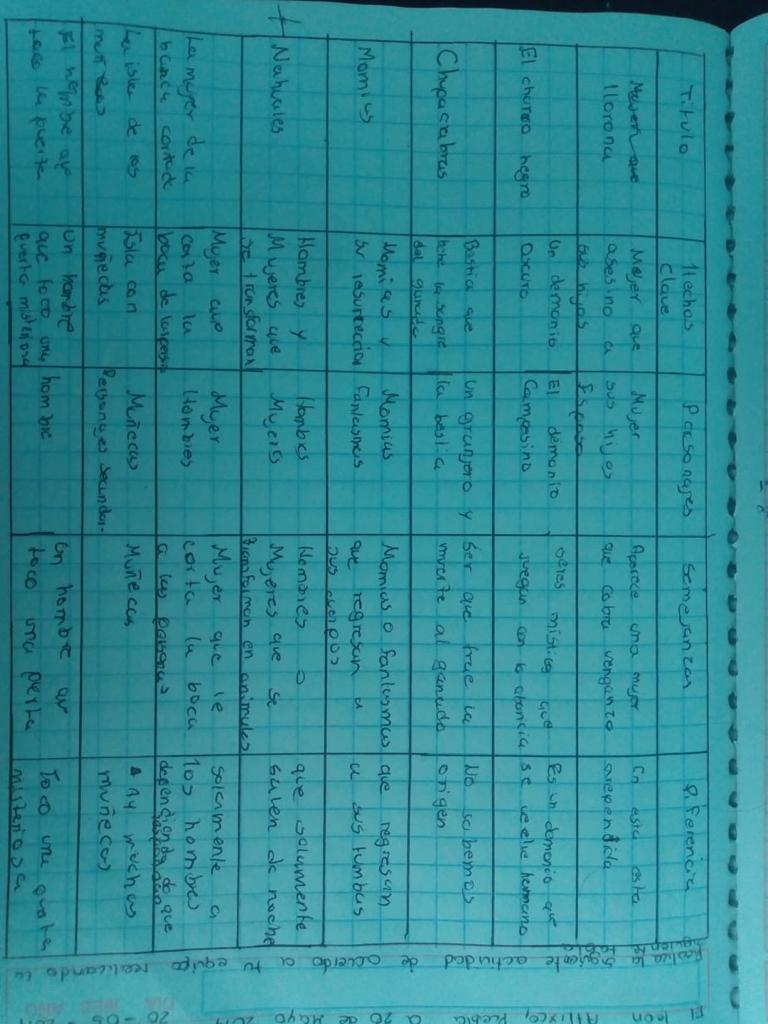 El leon Atlixco, Puebla a 20 de Mayo
20-05-
DIA MES AÑO
Realiza la siguiente actividad de acuerdo a tú equipo realizando la
tabla
Titulo
Hechos
Clave
Personajes
Semejanzas
Diferencia
Mujer que
llorona
Mujer que
asesino a
sus hijos
Mujer
sus hijos
Esposo
Aparece una mujer
que cobra venganza
En esta esta
arrependida
El charro negro
Un demonio
oscuro
El demonio
Campesino
seres misticos que
juegan con la
Es un demonio que
se vuelve humano
Chupacabras
Bestia que
bebe la sangre
del ganado
Un granjero y
la bestia
Ser que trae la
muerte al ganado
No sabemos
origen
Momias
Momias y
su resurreccion
Momias
Fantasmas
Momias o fantasmas
que regresan a
sus cuerpos
que regresan
a sus tumbas
Nahuales
Hombres y
Mujeres que
se transforman
Hombres
Mujeres
Hombres o
Mujeres que se
transforman en animales
que solamente
salen de noche
La mujer de la
boca cortada
Mujer que
corta la
boca de
Mujer
Hombres
Mujer que le
corta la boca
a las personas
solamente a
los hombres
dependiendo de que
La isla de las
muñecas
Isla con
muñecas
Muñecas
Personajes secundar-
Muñecas
Ay muchas
muñecas
El hombre que
toco la puerta
Un hombre
que toco una
puerta misteriosa
hombre
Un hombre que
toco una perta
Toco una puerta
misteriosa